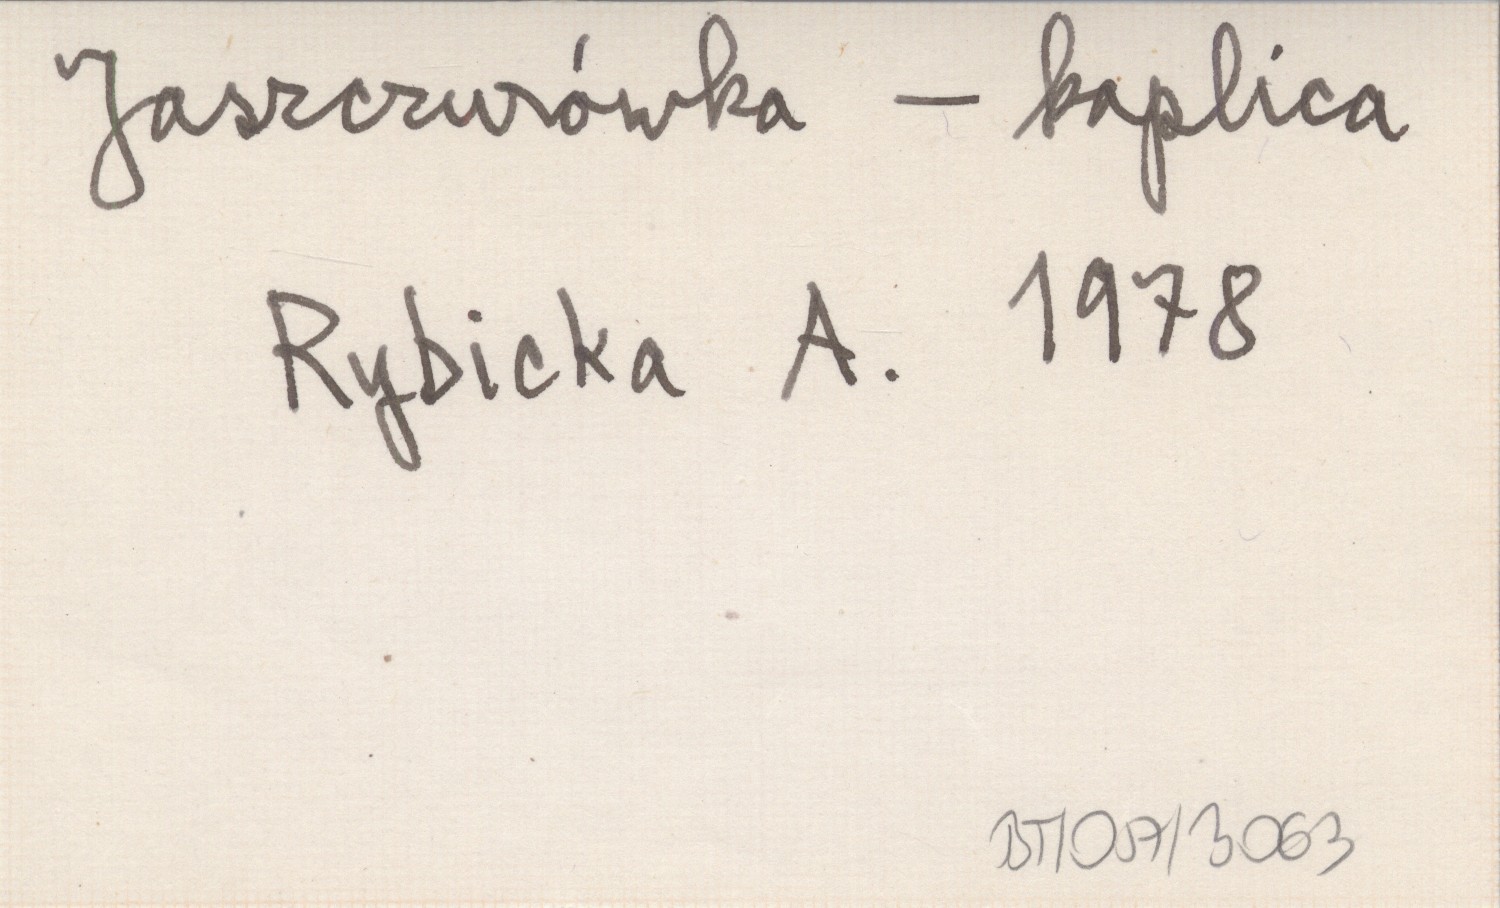 Jaszczurówka — kaplica
Rybicka A. 1978
BT/057/3063